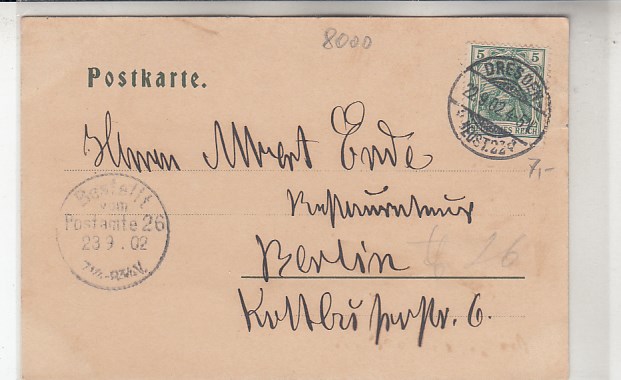 8000
5 5
DEUTSCHES REICH
DRESDEN
22.9.02
POST. 22d
7,-
Postkarte.
Herrn Albert Ende
Restaurateur
Berlin
Kottbuserstr. 6.
26
Bestellt
vom
Postamte 26
23 9. 02
7¼-8¾V.